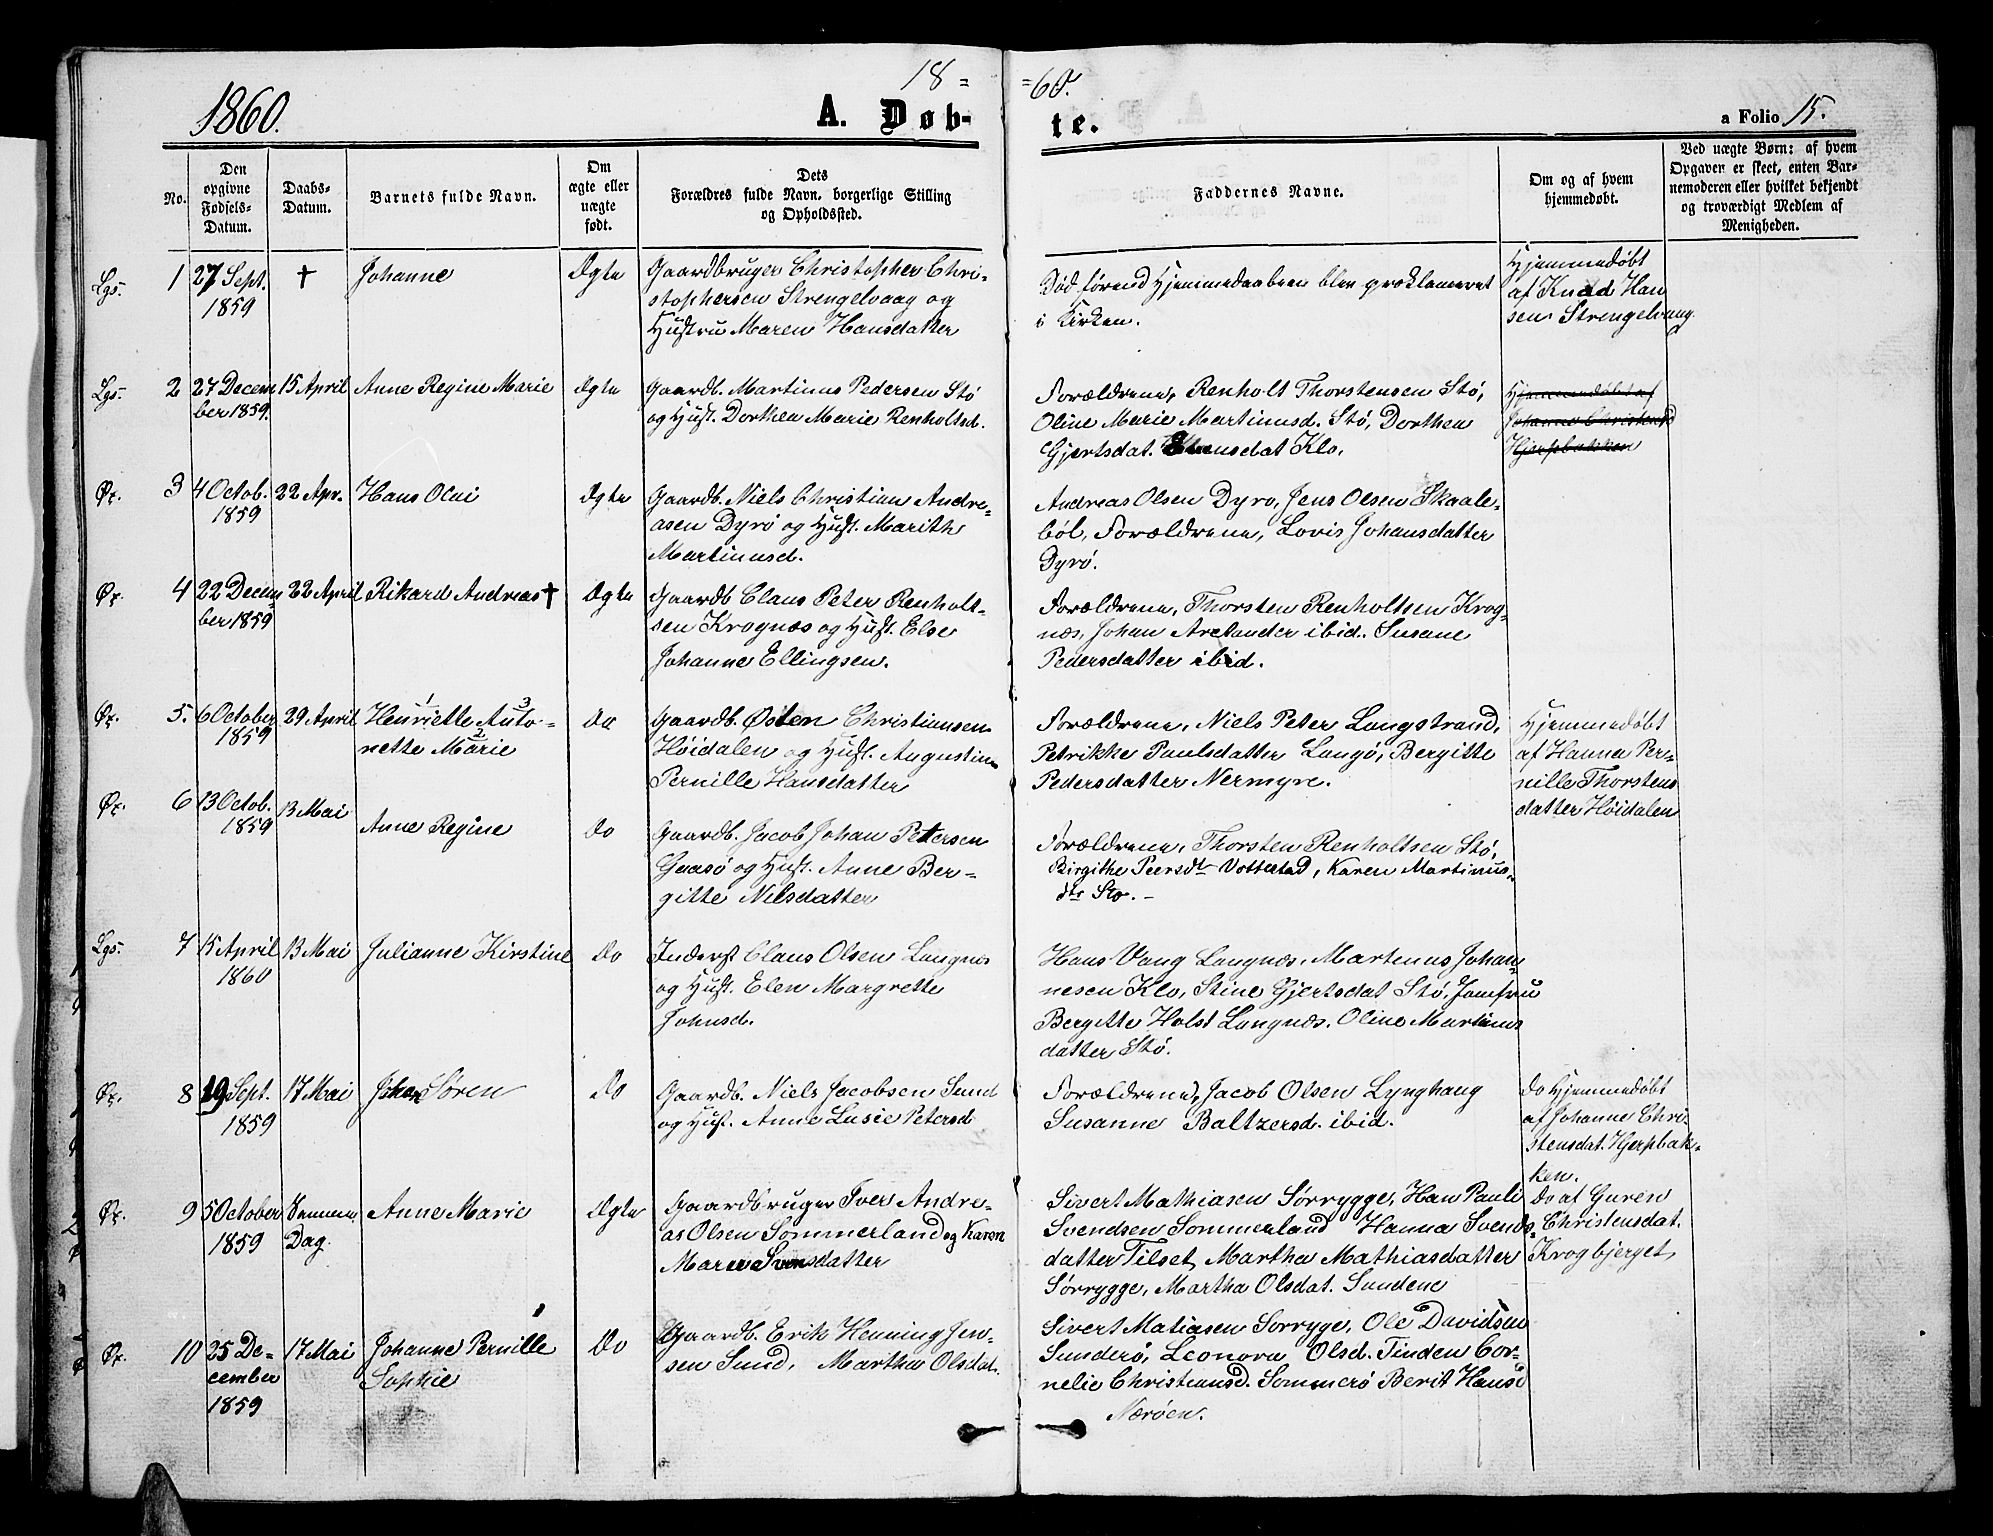 18 = = 60.
1860. A. Døb- te. a Folio 15.
No.
Den opgivne Fødsels-Datum.
Daabs-Datum.
Barnets fulde Navn.
Om ægte eller uægte født.
Dets Forældres fulde Navn, borgerlige Stilling og Opholdssted.
Faddernes Navne.
Om og af hvem hjemmedøbt.
Ved uægte Børn: af hvem Opgaven er skeet, enten Barnemoderen eller hvilket bekjendt og troværdigt Medlem af Menigheden.
Lgs. 1 27 Sept. 1859 † Johanne Ægte
Gaardbruger Christopher Chri-
stophersen Strengelvaag og
Hustru Maren Hansdatter
Død førend Hjemmedaaben blev proklameret
i Kirken.
Hjemmedøbt
af Knud Han
sen Strengelvaag
Lgs. 2 27 Decem
ber 1859. 15 April Anne Regine Marie Ægte
Gaardb. Martinus Pedersen Stø
og Hust. Dorthea Marie Renholtsd.
Forældrene, Renholt Thorstensen Stø,
Oline Marie Martinusd. Stø, Dorthea
Gjertsdat. Klo.
Hjemmedøbt af
Johanne Christensd
Hjerpbakken
Øx. 3 4 Octob.
1859 22 Apr. Hans Olai Ægte
Gaardb. Niels Christian Andre-
asen Dyrø og Hust. Marith
Martinusd.
Andreas Olsen Dyrø, Jens Olsen Skaale-
bøl, Forældrene, Lovis Johansdatter
Dyrø.
Øx. 4 22 Decem
ber 1859 22 April Rikard Andreas † Ægte
Gaardb Claus Peter Renholt-
sen Krognæs og Hust. Else
Johanne Ellingsen.
Forældrene, Thorsten Renholtsen Krog-
næs, Johan Arctander ibid. Susane
Pedersdatter ibid.
Øx. 5. 6 October
1859 29 April Henriette Anto-
nette Marie Do
Gaardb. Østen Christiansen
Høidalen og Hust. Augustine
Pernille Hansdatter
Forældrene, Niels Peter Langstrand,
Petrikke Paulsdatter Langø, Bergitte
Pedersdatter Nermyre.
Hjemmedøbt
af Hanna Per-
nille Thorstens
datter Høidalen
Øx. 6 13 Octob.
1859 13 Mai Anne Regine Do
Gaardb. Jacob Johan Petersen
Gaasø og Hust. Anne Ber-
gitte Nilsdatter
Forældrene, Thorsten Renholtsen Stø,
Birgithe Peersdtr Vottestad, Karen Martinus-
dtr Stø. -
Lgs. 7 15 April
1860 13 Mai Julianne Kirstine Do
Inderst Claus Olsen Langnæs
og Hust. Elen Margrette
Johnsd.
Hans Vang Langnæs, Martenus Johan-
nesen Klo, Stine Gjertsdat Stø, Jomfru
Bergitte Holst Langnæs. Oline Martinus
datter Stø.
Øx. 8 19 Sept.
1859 17 Mai Johan Søren Do
Gaardb. Niels Jacobsen Sund
og Hust. Anne Lusie Petersd
Forældrene, Jacob Olsen Lynghaug
Susanne Baltzersd. ibid.
Do Hjemmedøbt
af Johanne Chri-
stensdat. Hjerpbak-
ken.
Øx. 9 5 October
1859 Samme
Dag. Anne Marie Ægte
Gaardbruger Iver Andre-
as Olsen Sommerland og Karen
Marie Svensdatter
Sivert Mathiasen Sørrygge, Han Pauli
Svendsen Sommerland Hanna Svends-
datter Tilset, Martha Mathiasdatter
Sørrygge, Martha Olsdat. Sundene
Do af Guren
Christensdat.
Krogbjerget
Øx. 10 25 De-
cember
1859 17 Mai Johanne Pernille
Sophie Do
Gaardb. Erik Henning Jen-
sen Sund, Martha Olsdat.
Sivert Matiasen Sorryge, Ole Davidsen
Sunderø, Leonora Olsd. Tinden Cor-
nelie Christiansd. Sommerø Berit Hansd
Nærøen.